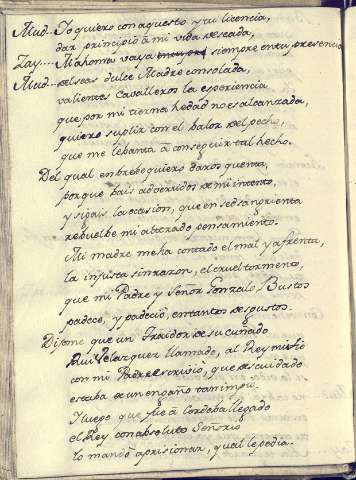 Mud... Yo quiero con aquesto y tu licencia,
dar principio â mi vida deseada,
Zay... Mahoma vaya siempre en tu presencia
Mud... Deseas dulce Madre consolada,
valientes cavalleros la esperiencia
que por mi tierna hedad no es alcanzada,
quiero suplir con el balor del pecho,
que me lebanta â conseguir tal hecho.
Del qual en brebe quiero daros quenta,
porque bais advertidos de mi intento,
y sigais la ocasion, que en sed sangrienta
rebuelbe mi alterado pensamiento.
Mi madre me ha contado el mal y afrenta,
la injusta sinrazon, el cruel tormento,
que mi Padre y Señor Gonzalo Bustos
padece, y padeciô, en tantos desgustos.
Dijome que un Traidor de su cuñado
Rui Velazquez llamado, al Rey
con mi Padre escriviô, que descuidado
estaba de un engaño tan impio.
Y luego que fue â Cordoba llegado
el Rey con absoluto Señorio
lo mandô aprisionar, qual le pedia.